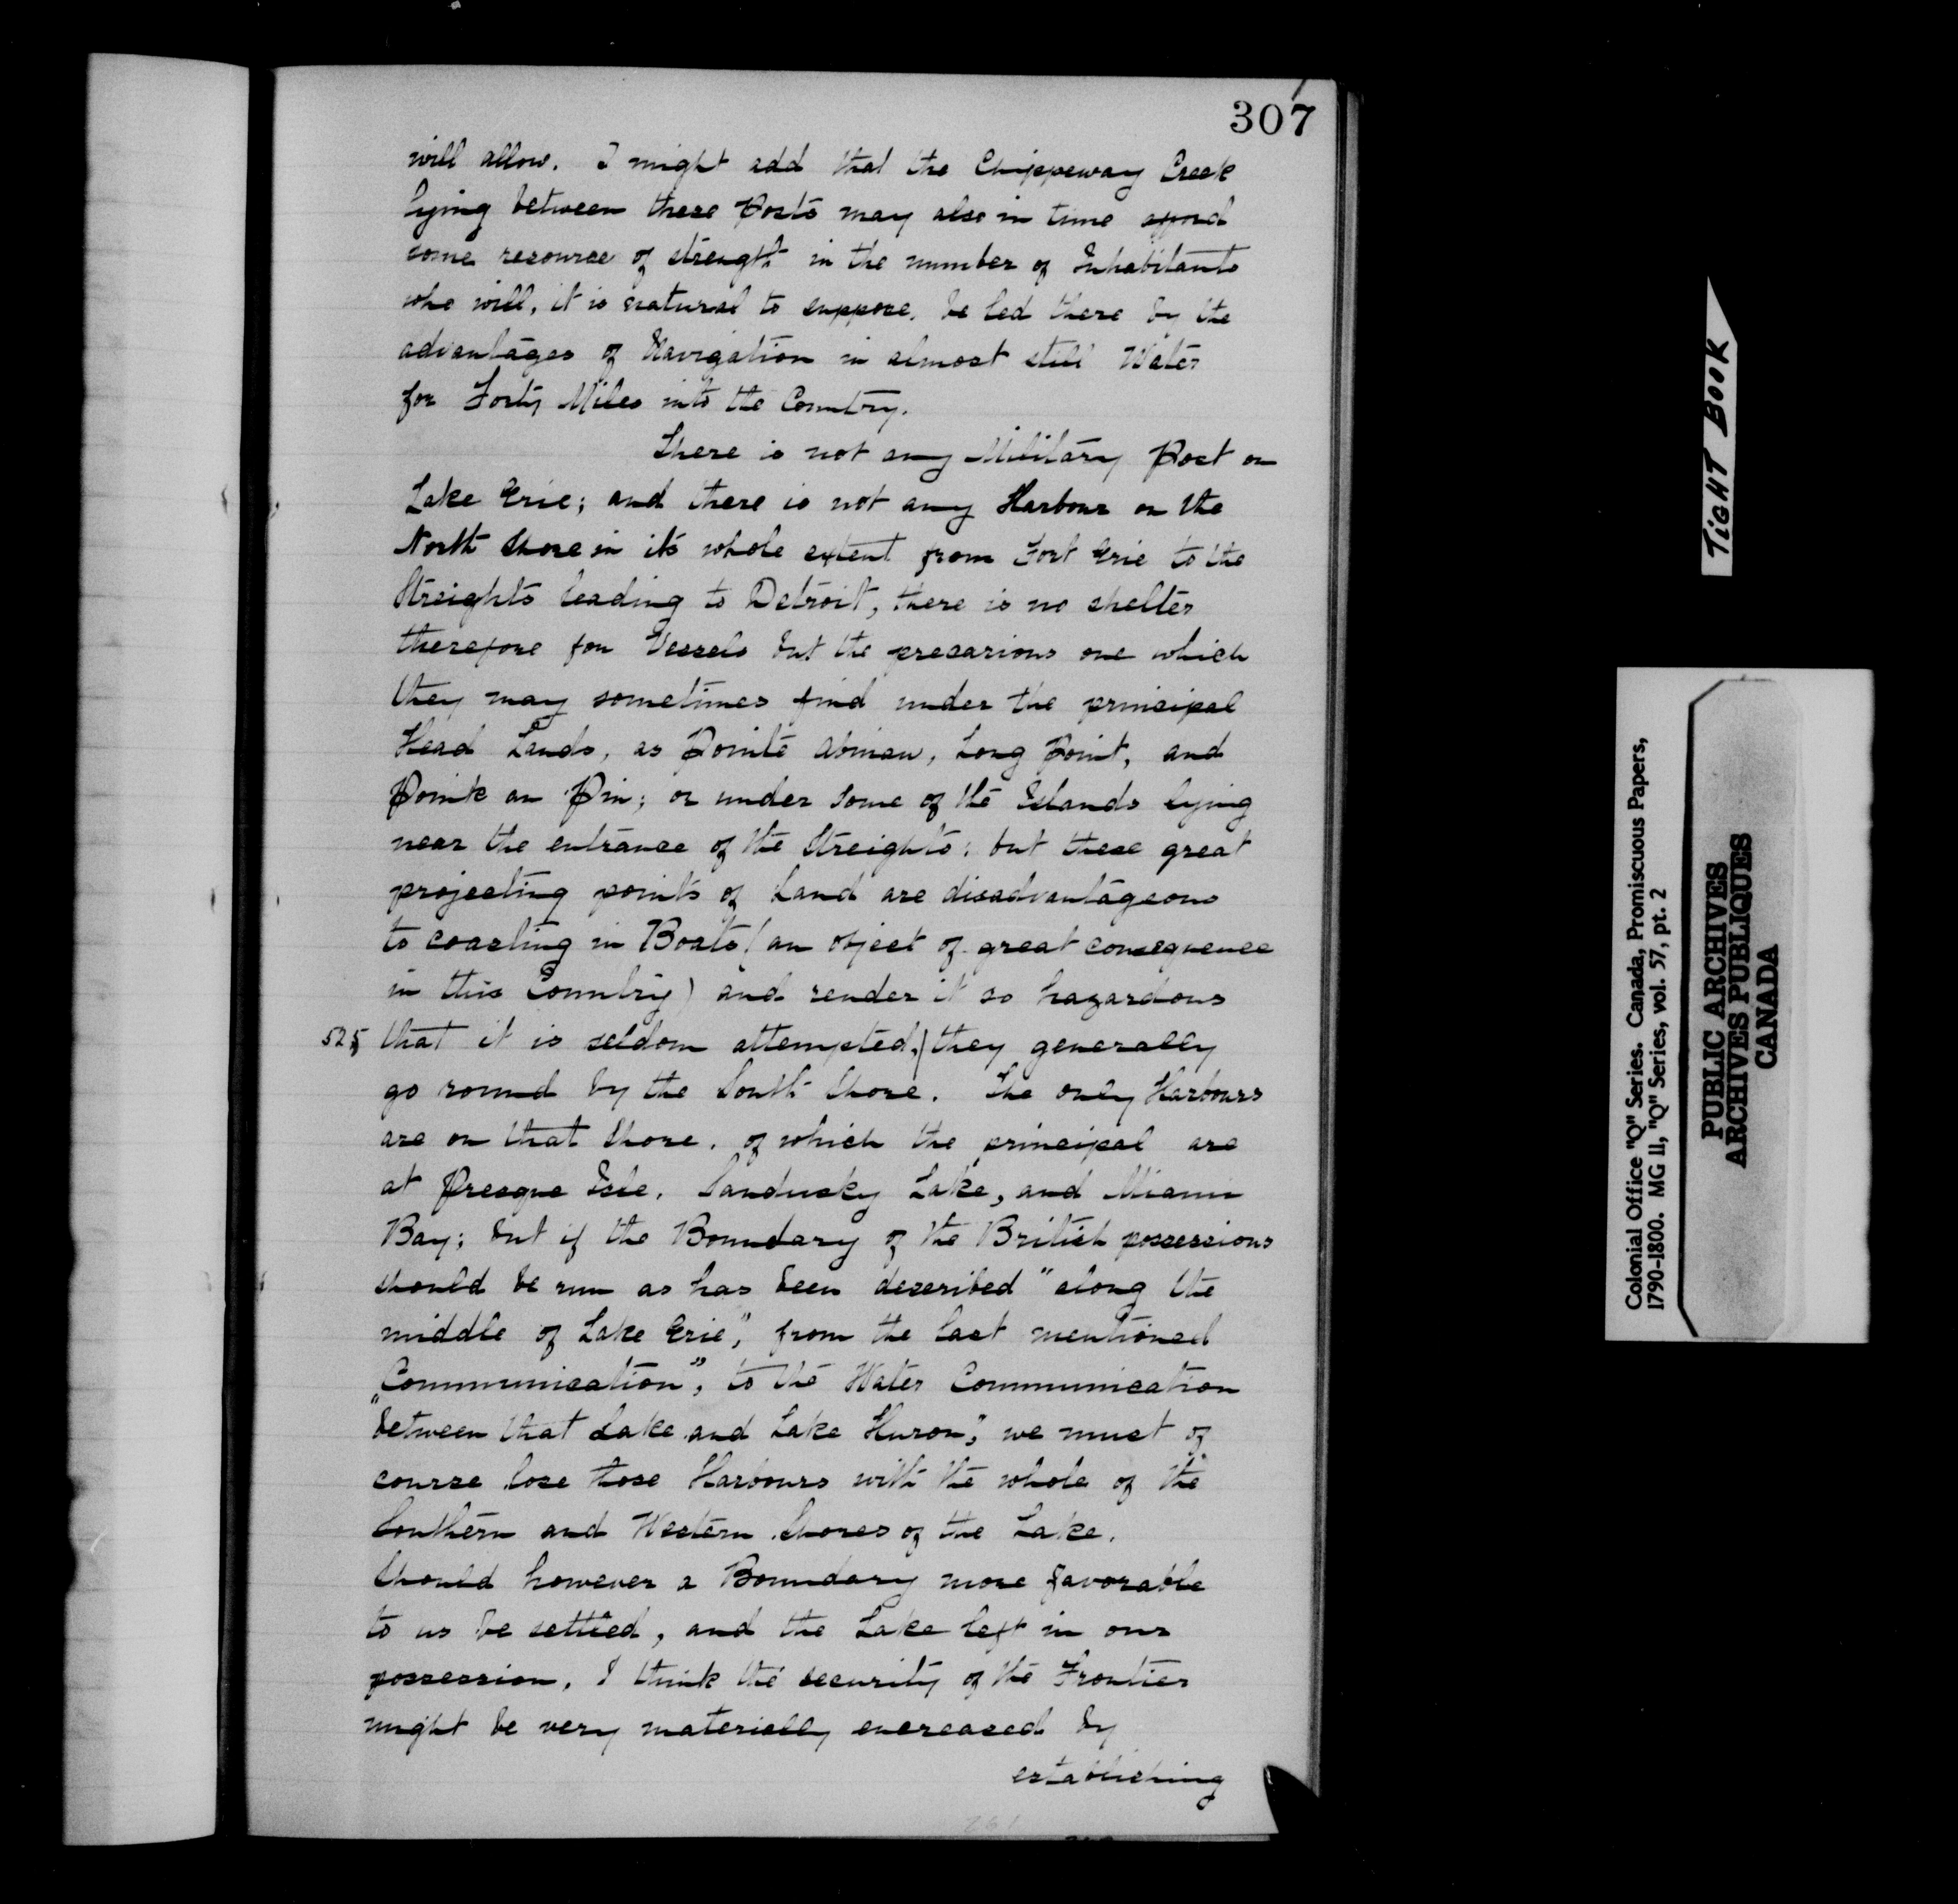 307
will allow. I might add that the Chippeway Creek
lying between these Posts may also in time afford
some resource of strength in the number of Inhabitants
who will, it is natural to suppose, be led there by the
advantages of Navigation in almost still Water
for Forty Miles into the Country.
There is not any Military Post on
Lake Erie; and there is not any Harbour on the
North Shore in its whole extent from Fort Erie to the
Streights leading to Detroit, there is no shelter
therefore for Vessels but the precarious one which
they may sometimes find under the principal
Head Lands, as Pointe Abinau, Long Point, and
Pointe au Pin; or under some of the Islands lying
near the entrance of the Streights; but these great
projecting points of Land are disadvantageous
to coasting in Boats (an object of great consequence
in this Country) and render it so hazardous
525 that it is seldom attempted, they generally
go round by the South Shore. The only Harbours
are on that Shore, of which the principal are
at Presque Isle, Sandusky Lake, and Miami
Bay; but if the Boundary of the British possessions
should be run as has been described "along the
middle of Lake Erie", from the last mentioned
"Communication", to the Water Communication
"between that Lake and Lake Huron", we must of
course lose those Harbours with the whole of the
Southern and Western Shores of the Lake.
Should however a Boundary more favorable
to us be settled, and the Lake left in our
possession, I think the security of the Frontier
might be very materially encreased by
establishing
TIGHT BOOK
Colonial Office "Q" Series. Canada, Promiscuous Papers,
1790-1800. MG 11, "Q" Series, vol. 57, pt. 2
PUBLIC ARCHIVES
ARCHIVES PUBLIQUES
CANADA